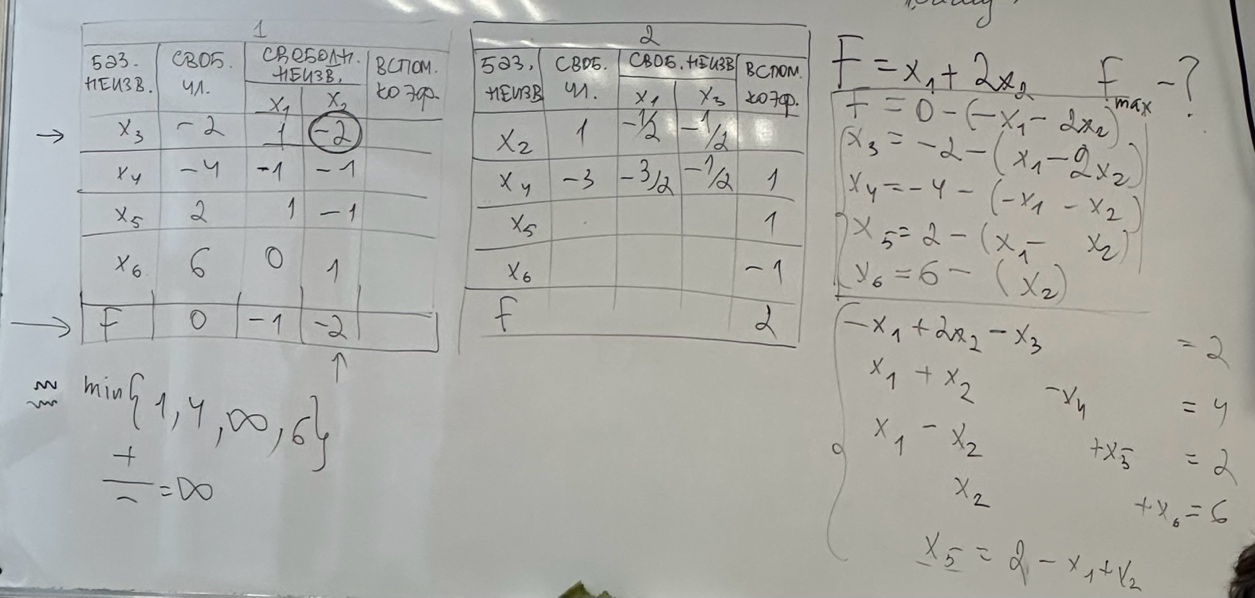 1
БАЗ. НЕИЗВ. СВОБ. ЧЛ. СВОБОДН. НЕИЗВ. ВСПОМ. КОЭФ.
x₁ x₂
→ x₃ -2 1 -2
x₄ -4 -1 -1
x₅ 2 1 -1
x₆ 6 0 1
→ F 0 -1 -2
↑
min{1, 4, ∞, 6}
+/- = ∞
2
БАЗ. НЕИЗВ СВОБ. ЧЛ. СВОБ. НЕИЗВ ВСПОМ. КОЭФ.
x₁ x₃
x₂ 1 -1/2 -1/2
x₄ -3 -3/2 -1/2 1
x₅ 1
x₆ -1
F 2
F = x₁ + 2x₂ F max - ?
F = 0 - (-x₁ - 2x₂)
x₃ = -2 - (x₁ - 2x₂)
x₄ = -4 - (-x₁ - x₂)
x₅ = 2 - (x₁ - x₂)
x₆ = 6 - (x₂)
-x₁ + 2x₂ - x₃ = 2
x₁ + x₂ - x₄ = 4
x₁ - x₂ + x₅ = 2
x₂ + x₆ = 6
x₅ = 2 - x₁ + x₂